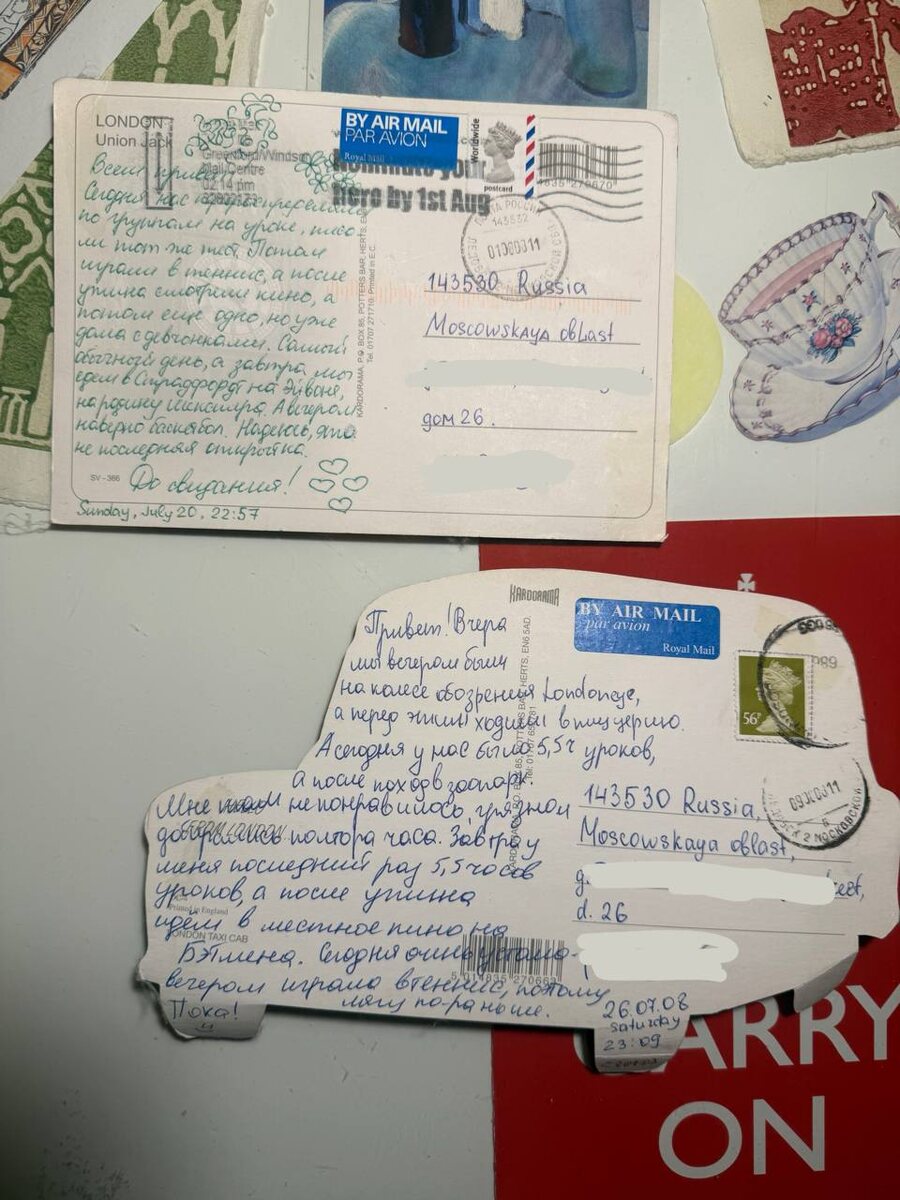 LONDON
Union Jack
Greenford/Windsor
Mail Centre
02:14 pm
BY AIR MAIL
PAR AVION
Royal Mail
Worldwide
postcard
Nominate your
Hero by 1st Aug
ПОЧТА РОССИИ
143532
Всем привет!
Сегодня нас распределили
по группам на уроке, писа-
ли тот же тест. Потом
играли в теннис, а после
ужина смотрели кино, а
потом ещё одно, но уже
дома с девчонками. Самый
обычный день, а завтра мы
едем в Страдфордт на Эйвоне,
на родину Шекспира. А вечером
наверно баскетбол. Надеюсь, это
не последняя открытка.
До свидания!
SV-366
Sunday, July 20, 22:57
KARDORAMA, P.O. BOX 85, POTTERS BAR, HERTS, EN6
Tel: 01707 271710. Printed in E.C.
143530 Russia
Moscowskaya oblast
дом 26.
KARDORAMA
BY AIR MAIL
par avion
Royal Mail
56P
Привет! Вчера
мы вечером были
на колесе обозрения Londonge,
а перед этим ходили в пиццерию.
А сегодня у нас было 5,5ч уроков,
а после поход в зоопарк.
Мне там не понравилось, грязно и
добирались полтора часа. Завтра у
меня последний раз 5,5 часов
уроков, а после ужина
идём в местное кино на
Бэтмена. Сегодня очень устала-
вечером играла в теннис, поэтому
лягу по-раньше.
Пока!
Printed in England
LONDON TAXI CAB
143530 Russia,
Moscowskaya oblast,
d. 26
26.07.08
saturday
23:09
CARRY
ON